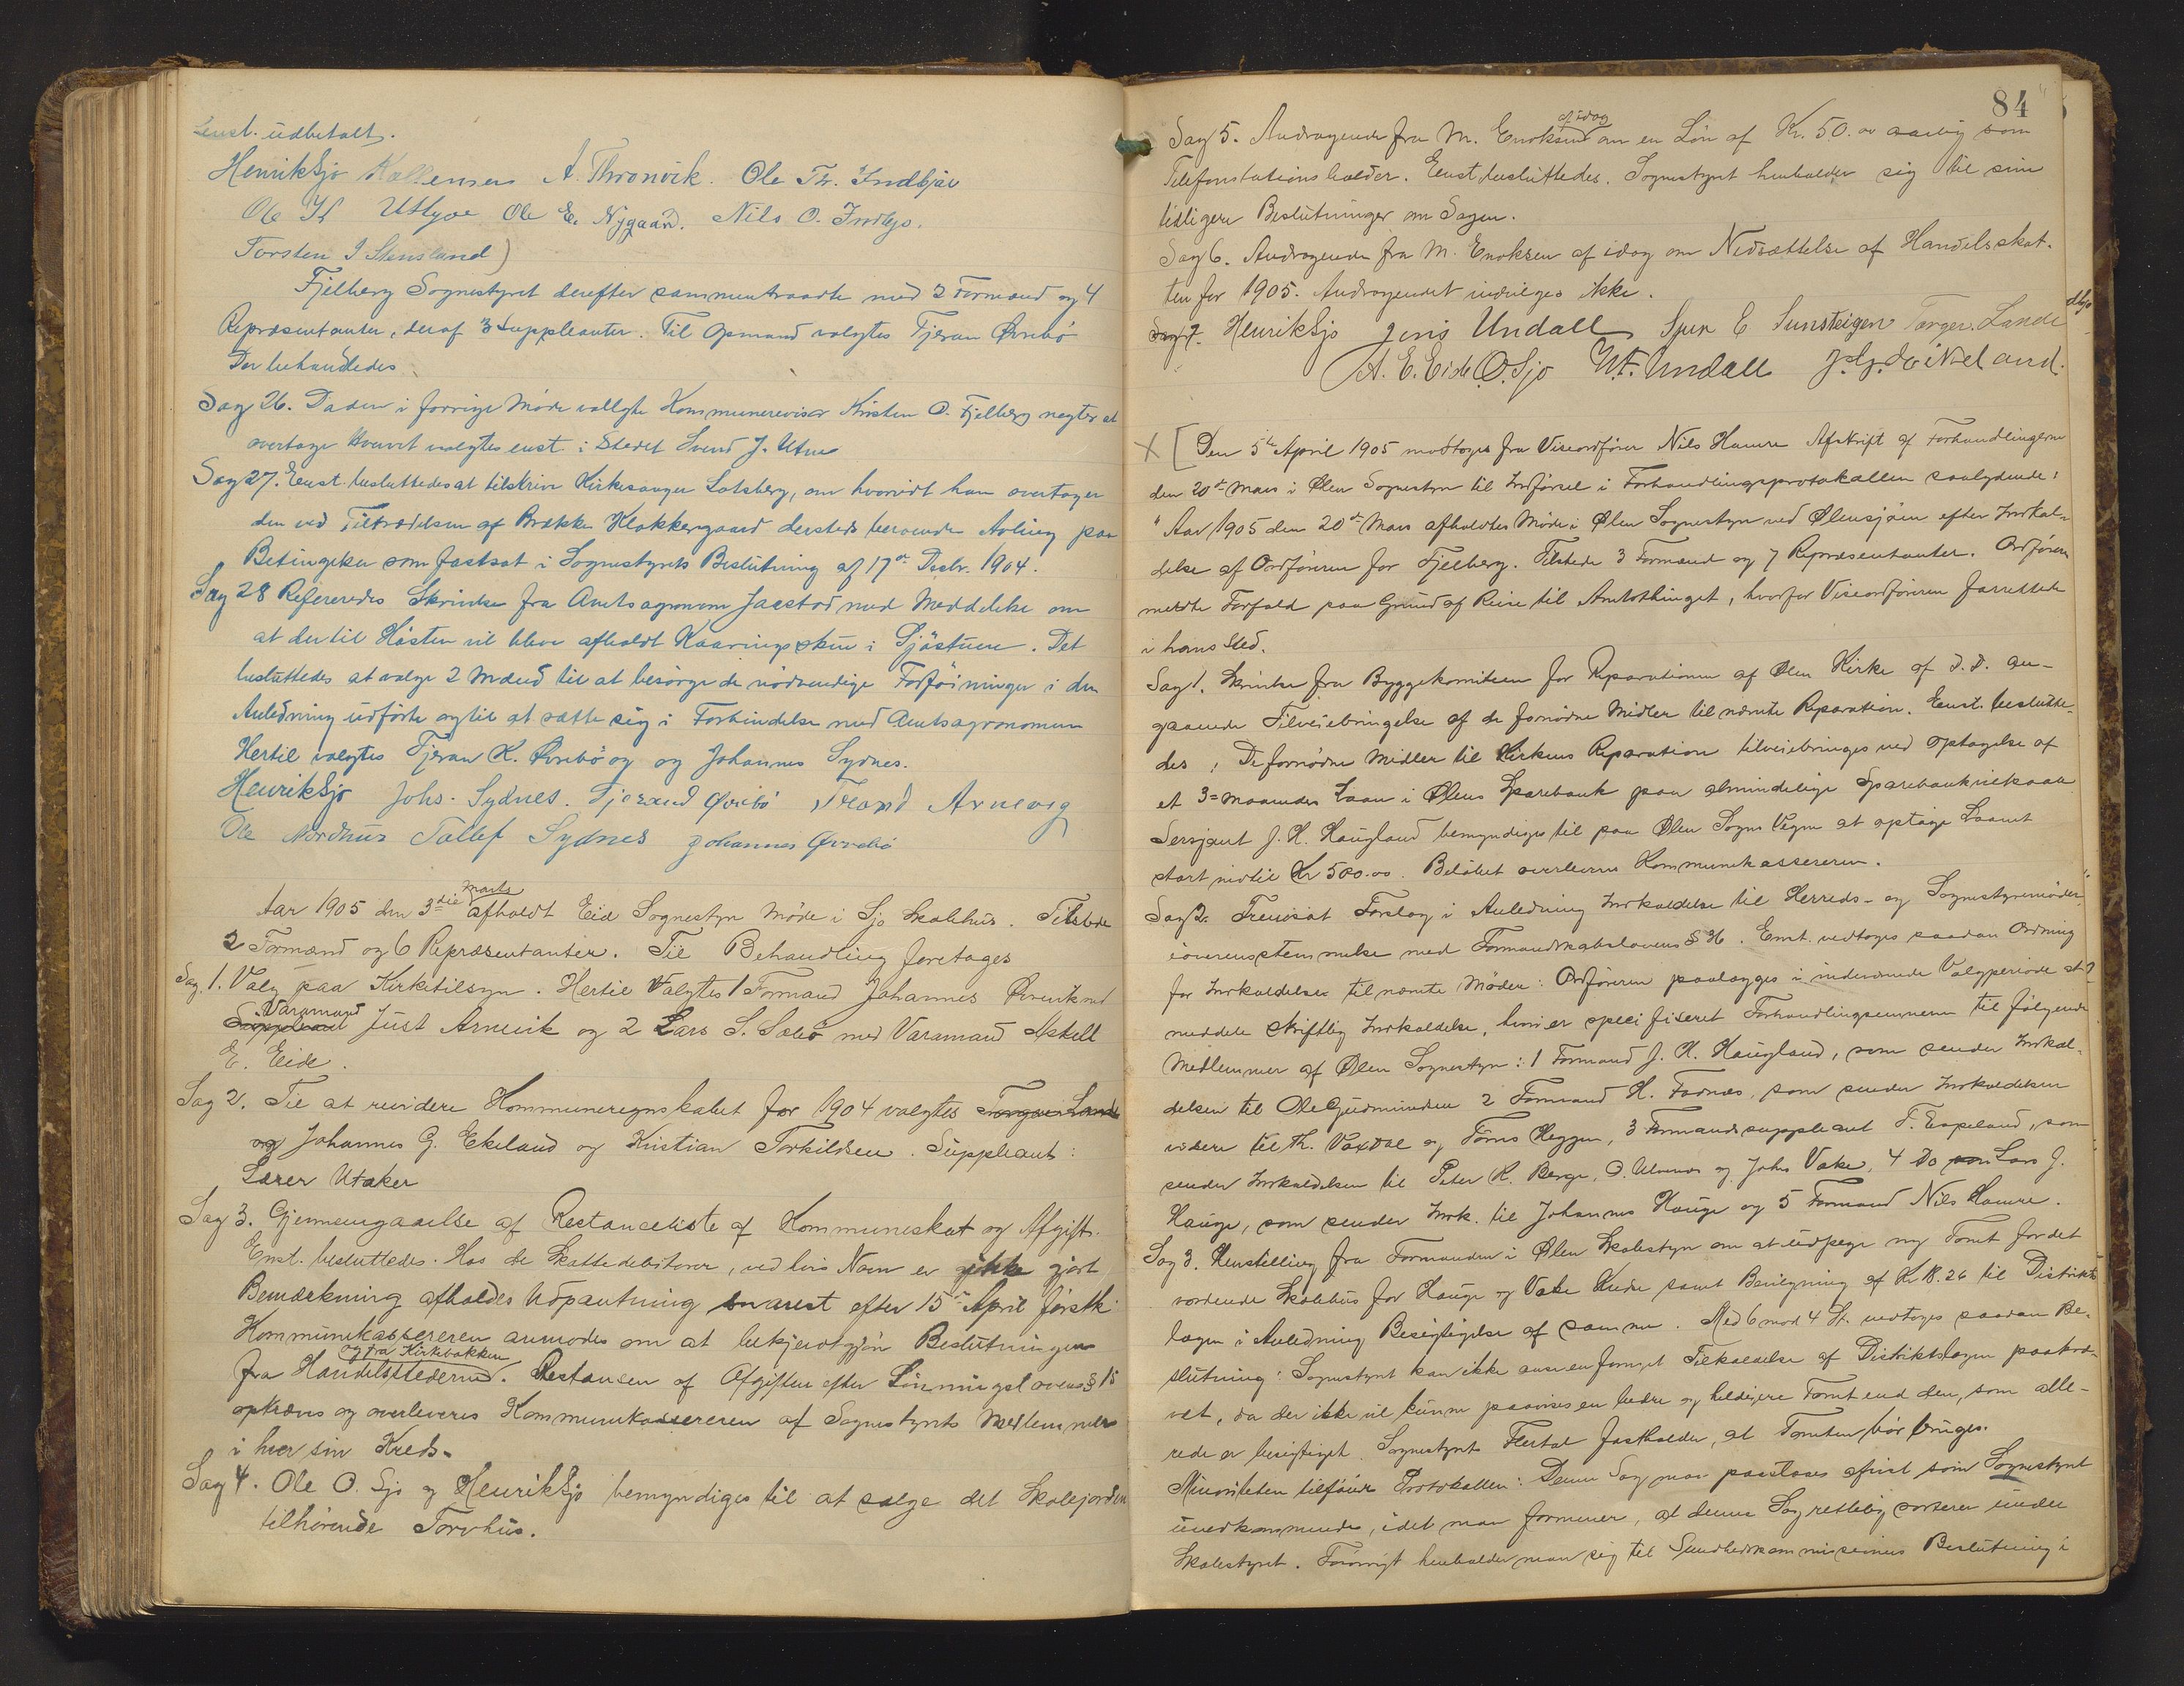 Enst. udbetalt.
Henrik Sjo Kallensen A. Thronvik. Ole Tr. Indbjør
Ole K Utbjoe Ole E. Nygaard. Nils O. Indbjo.
Torsten I Stensland)
Fjelberg Sognestyret derefter sammentraadte med 2 Formænd og 4
Repræsentanter, deraf 3 Suppleanter. Til Opmand valgtes Tjeran Øvrebö
Der behandledes
Sag 26. Da den i forrige Møde vallgte Kommunerevisor Kristen O. Fjelberg negter at
overtage Hvervet valgtes enst. i Stedet Svend J. Utne
Sag 27. Enst. besluttedes at tilskrive Kirkesanger Lotsberg, om hvorvidt han overtager
den ved Tiltrædelsen af Brække Klokkergaard dersteds beroende Avling paa
Betingelser som fastsat i Sognestyrets Beslutning af 17de Decbr. 1904.
Sag 28 Refereredes Skrivelse fra Amtsagronom Jaastad med Meddelelse om
at der til Høsten vil blive afholdt Kaaringsskue i Sjöstuen. Det
besluttedes at valge 2 Mænd til at besörge de nödvendige Forföininger i den
Anledning udförte og til at sætte sig i Forbindelse med Amtsagronomen
Hertil valgtes Tjeran K. Øvrebö og og Johannes Sydnes.
Henrik Sjo Johs. Sydnes. Tjerand Øvrebö Trond Arnevig
Ole Nordhus Tallef Sydnes Johannes Øvrebö
Marts
Aar 1905 den 3die afholdt Eid Sognestyre Möde i Sjo Skolehus. Tilstede
2 Formænd og 6 Repræsentanter. Til Behandling foretages
Sag. 1. Valg paa Kirketilsyn. Hertil Valgtes 1 Formand Johannes Ørevik med
Varamand
Suppleant Just Arnevik og 2 Lars S. Sæbö med Varamand Askell
E. Eide.
Sag 2. Til at revidere Kommuneregnskabet for 1904 valgtes Torger Lande
og Johannes G. Ekeland og Kristian Torkildsen. Suppleant:
Lærer Utaker
Sag 3. Gjennemgaaelse af Restanceliste af Kommuneskat og Afgift.
Enst. besluttedes. Hos de Skattedebitorer, ved hvis Navn er ikke gjort
Bemærkning afholdes Udpantning snarest efter 15de April förstk.
Kommunekassereren anmodes om at bekjendtgjöre Beslutningen
og fra Kirkebakken
fra Handelsstederne. Restansen af Afgiften efter Lönningslovens § 15
opkræves og overleveres Kommunekassereren af Sognestyrets Medlemmer
i hver sin Kreds.
Sag 4. Ole O. Sjo og Henrik Sjo bemyndiges til at sælge det Skolejorden
tilhörende Torvhus.
84
af idag
Sag 5. Andragende fra M. Enoksen om en Lön af Kr. 50.00 aarlig som
Telefonstationsholder. Enst. besluttedes. Sognestyret henholder sig til sine
tidligere Beslutninger om Sagen.
Sag 6. Andragende fra M. Enoksen af idag om Nedsættelse af Handelsskat-
ten for 1905. Andragendet indvilges ikke.
Sag 7. Henrik Sjo Jens Undall Sjur E Sunsteigen Torger. Lande
A. E. Eide O. Sjo W. F. Undall J. G. Eikeland.
X [Den 5te April 1905 modtoges fra Viseordförer Nils Hamre Afskrift af Forhandlingerne
den 20de Mars i Ølen Sognestyre til Indførsel i Forhandlingsprotokollen saalydende:
"Aar 1905 den 20de Mars afholdtes Møde i Ølen Sognestyre ved Ølensjøen efter Indkal-
delse af Ordføreren for Fjelberg. Tilstede 3 Formænd og 7 Repræsentanter. Ordføreren
meldte Forfald paa Grund af Reise til Amtsthinget, hvorfor Viseordføreren forrettede
i hans Sted.
Sag 1. Skrivelse fra Byggekomiteen for Reparationen af Ølen Kirke af d. d. an-
gaaende Tilveiebringelse af de fornödne Midler til nævnte Reparation. Enst. beslutte-
des: De fornödne Midler til Kirkens Reparation tilveiebringes ved Optagelse af
et 3=maaneders Laan i Ølens Sparebank paa almindelige Sparebankvilkaar
Sersjant J. H. Haugland bemyndiges til paa Ølen Sogns Vegne at optage Laanet
stort indtil Kr 500.00. Belöbet overleveres Kommunekassereren.
Sag 2. Fremsat Forslag i Anledning Indkaldelse til Herreds- og Sognestyremöder
i overensstemmelse med Formandskabslovens § 36. Enst. vedtoges saadan Ordning
for Indkaldelse til nævnte Möder: Ordföreren paalægges i indeværende Valgperiode at
meddele skriftlig Indkaldelse, hvori er specifiseret Forhandlingsemnerne til fölgende
Medlemmer af Ølen Sognestyre: 1 Formand J. H. Haugland, som sender Indkal-
delsen til Ole Gudmundsen 2 Formand H. Fadnæs, som sender Indkaldelsen
videre til Th. Vaxdal og Töres Heggen, 3 Formandssuppleant T. Espeland, som
sender Indkaldelsen til Peter K. Berge, O. Ulvenes og Johs Vake, 4 Do Lars J.
Hauge, som sender Indk. til Johannes Hauge og 5 Formand Nils Hamre.
Sag 3. Henstilling fra Formanden i Ølen Skolestyre om at udpege ny Tomt for det
vordende Skolehus for Hauge og Vake Kreds samt Bevilgning af Kr 18.26 til Distrikts-
lægen i Anledning Besigtigelse af samme. Med 6 mod 4 St. vedtoges saadan Be-
slutning: Sognestyret kan ikke anse en fornyet Tilkaldelse af Distriktslægen paakræ-
vet, da der ikke vil kunne paavises en bedre og heldigere Tomt end den, som alle-
rede er besigtiget. Sognestyrets Flertal fastholder, at Tomten bör bruges.
Minoriteten tilföier Protokollen: Denne Sag maa paastaaes afvist som Sognestyret
uvedkommende, idet man formener, at denne Sag rettelig sorterer under
Skolestyret. Forövrigt henholder man sig til Sundhedskommissionens Beslutning i